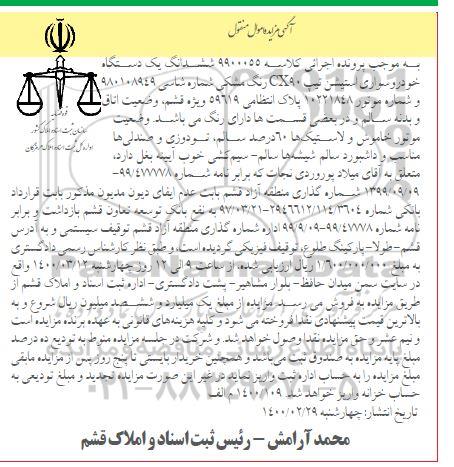 آگهی مزایده اموال منقول
قوه قضائیه
سازمان ثبت اسناد و املاک کشور
اداره کل ثبت اسناد و املاک هرمزگان
به موجب پرونده اجرائی کلاسه ۹۹۰۰۰۵۵ ششدانگ یک دستگاه
خودرو سواری استیشن تیپ CX۹۰ رنگ مشکی شماره شاسی ۹۸۰۱۰۸۹۴۹
و شماره موتور ۱۰۲۲۱۸۴۸ پلاک انتظامی ۵۹۶۱۹ ویژه قشم، وضعیت اتاق
و بدنه سالم و در بعضی قسمت ها دارای رنگ می باشد. وضعیت
موتور خاموش و لاستیک‌ها ۶۰درصد سالم، تودوزی و صندلی‌ها
مناسب و داشبورد سالم شیشه‌ها سالم- سیم‌کشی خوب آیینه بغل دارد،
متعلق به آقای میلاد پوروردی نجات که برابر نامه شماره ۹۹/۴۷۷۷۸-
۱۳۹۹/۰۹/۰۹ شماره گذاری منطقه آزاد قشم بابت عدم ایفای دیون مدیون مذکور بابت قرارداد
بانکی شماره ۲۹۴۶۶۱۲/۱۱۴/۳۶۰۴-۹۷/۰۳/۲۱ به نفع بانک توسعه تعاون قشم بازداشت و برابر
نامه شماره ۹۹/۴۷۷۷۸-۹۹/۹/۰۹ اداره شماره گذاری منطقه آزاد قشم توقیف سیستمی و به آدرس
قشم-طولا-پارکینگ طلوع، توقیف فیزیکی گردیده است. و طبق نظر کارشناس رسمی دادگستری
به مبلغ ۱/۶۰۰/۰۰۰/۰۰۰ ریال ارزیابی شده، از ساعت ۹ الی ۱۲ روز چهارشنبه ۱۴۰۰/۰۳/۱۲ واقع
در سایت سمن میدان حافظ- بلوار مشاهیر- پشت دادگستری- اداره ثبت اسناد و املاک قشم از
طریق مزایده به فروش می رسد. مزایده از مبلغ یک میلیارد و ششصد میلیون ریال شروع و به
بالاترین قیمت پیشنهادی نقدا فروخته می شود و کلیه هزینه‌های قانونی به عهده برنده مزایده است
و نیم عشر و حق مزایده نقدا وصول خواهد شد. و شرکت در جلسه مزایده منوط به تودیع ده درصد
مبلغ پایه مزایده به صندوق ثبت می‌باشد و همچنین خریدار بایستی تا پنج روز پس از مزایده مابقی
مبلغ مزایده را به حساب اداره ثبت واریز نماید در غیر این صورت مزایده تجدید و مبلغ تودیعی به
حساب خزانه واریز خواهد شد. ۱۴۰۰/۱۰۹ م الف
تاریخ انتشار: چهارشنبه ۱۴۰۰/۰۲/۲۹
محمد آرامش – رئیس ثبت اسناد و املاک قشم
۰۲۱-۸۸۳۴۹۶۷۰-۵